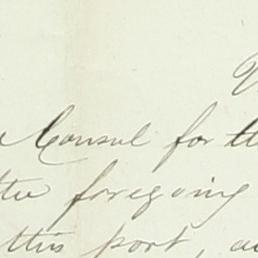 Consul for th
the foregoing
this port, a